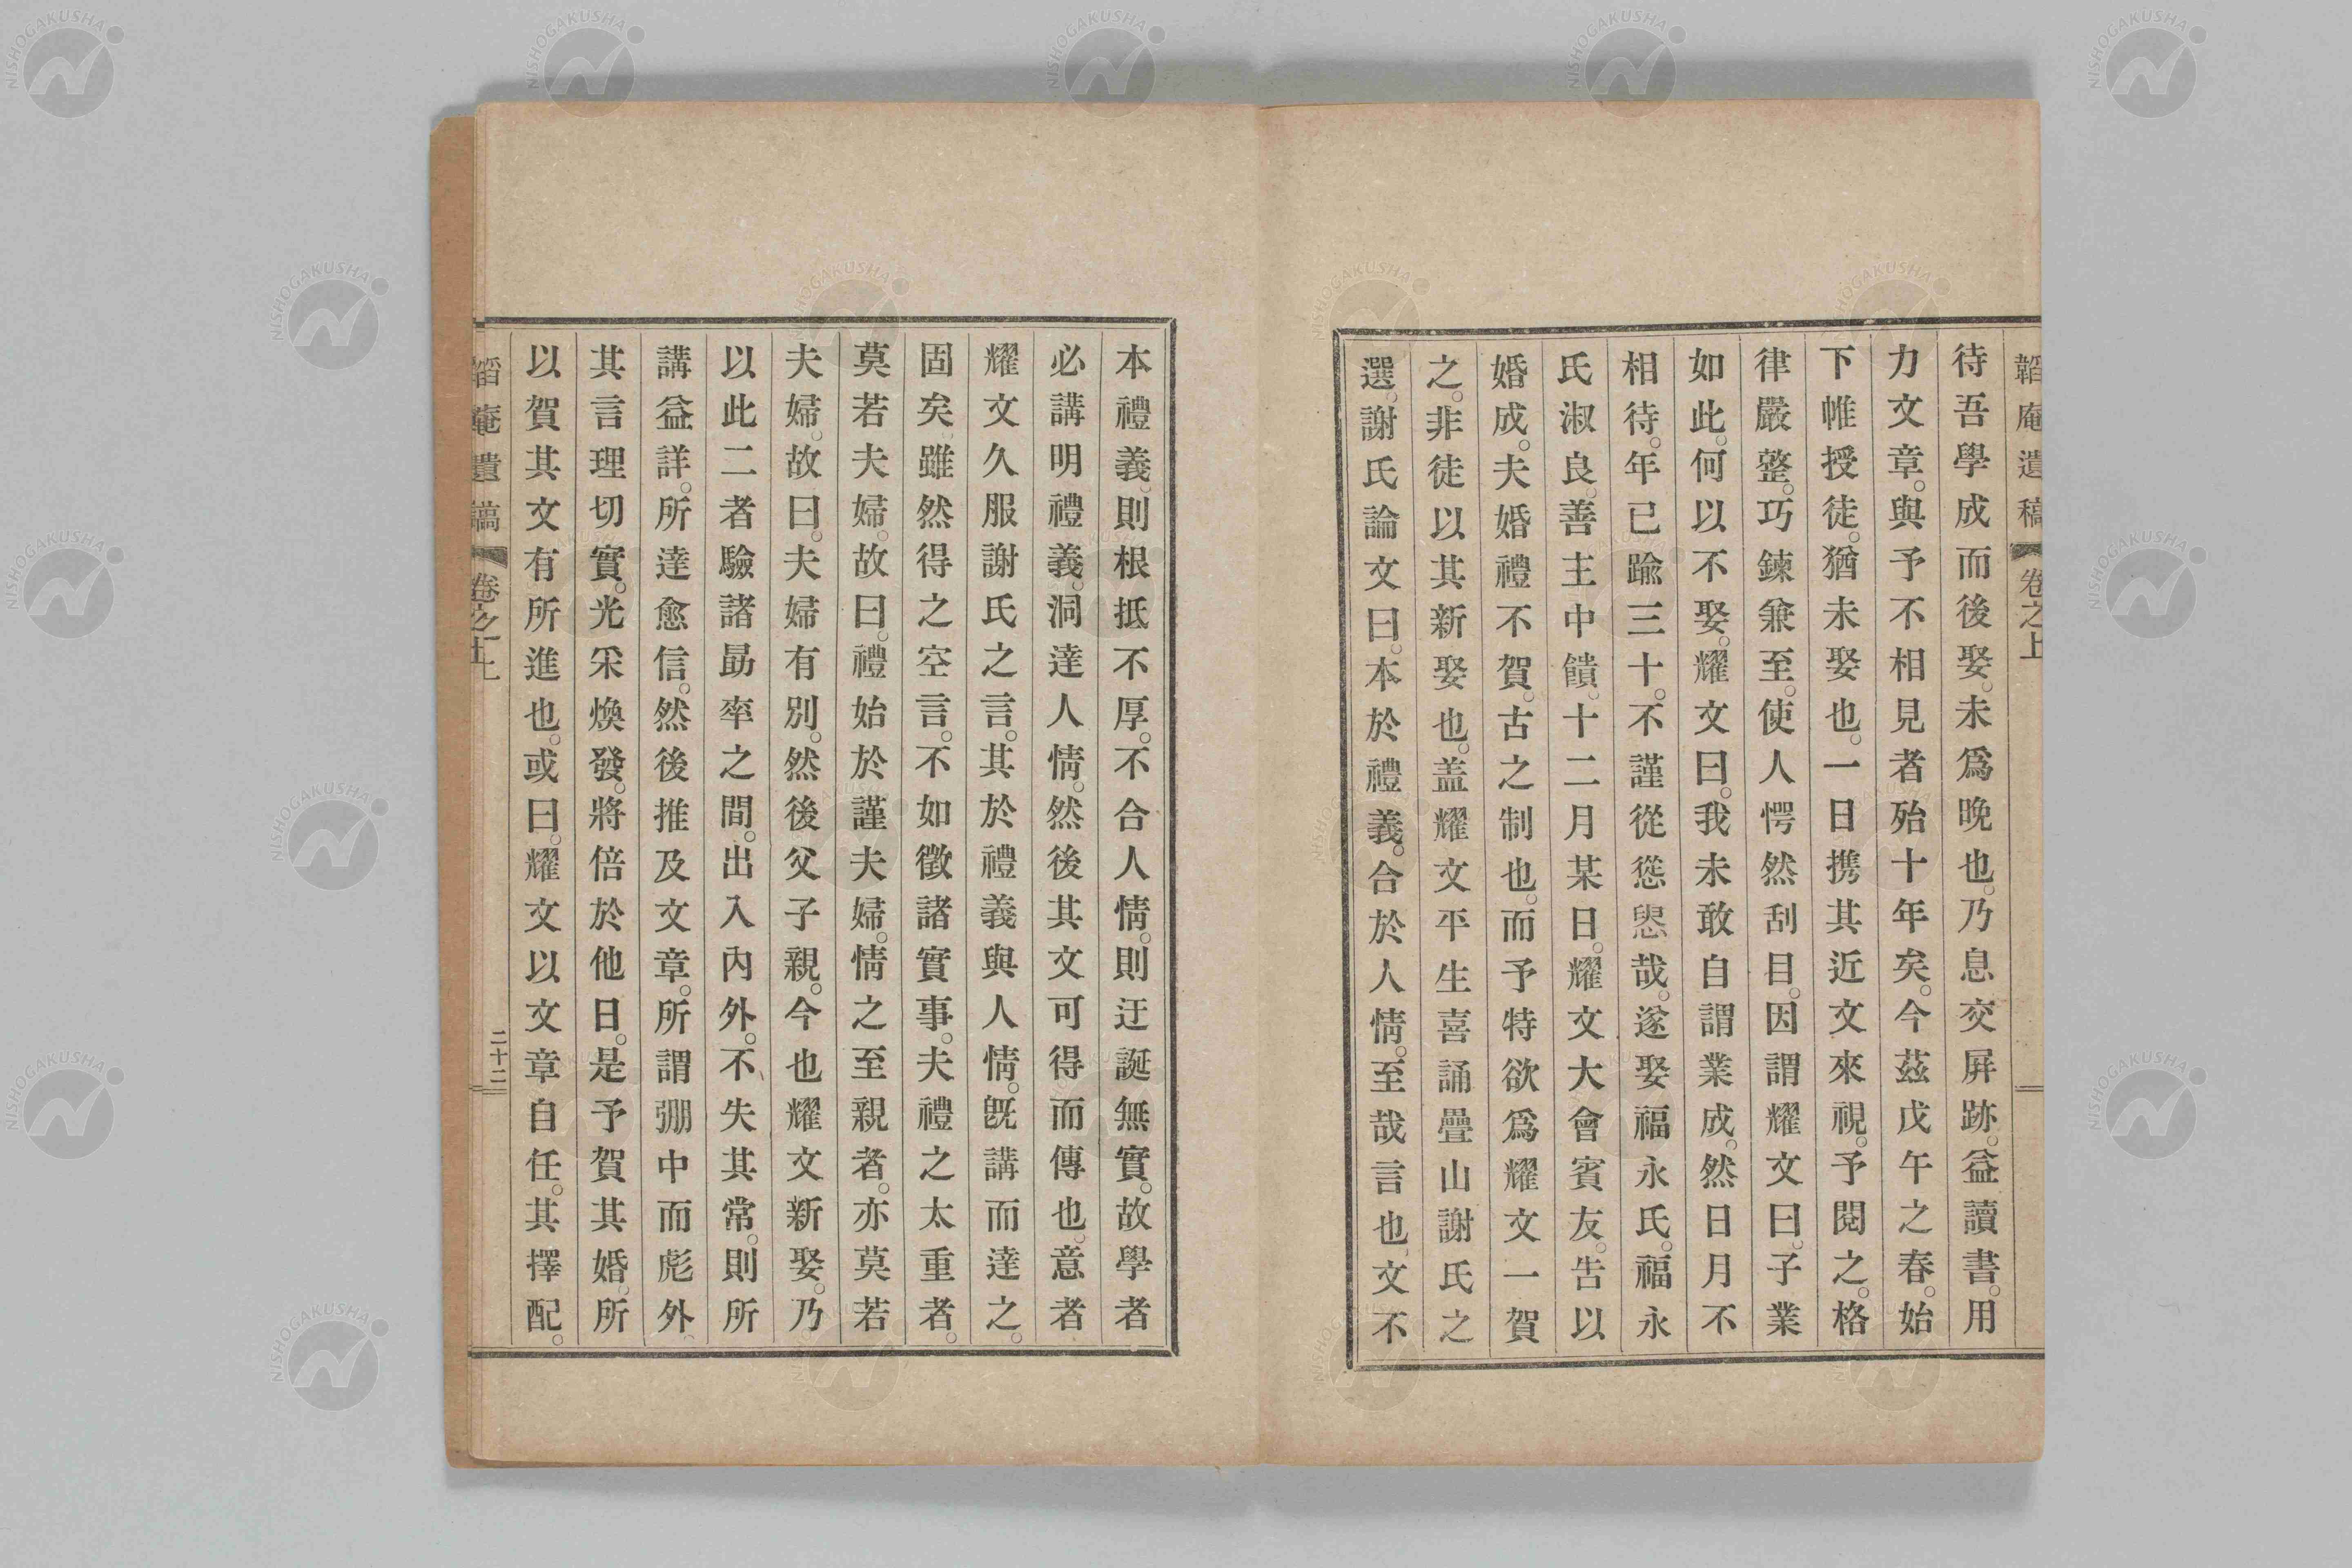 韜庵遺稿 卷之上
待吾學成而後娶。未爲晚也。乃息交屛跡。益讀書。用
力文章。與予不相見者殆十年矣。今茲戊午之春。始
下帷授徒。猶未娶也。一日携其近文來視。予閱之。格
律嚴整。巧鍊兼至。使人愕然刮目。因謂耀文曰。子業
如此。何以不娶。耀文曰。我未敢自謂業成。然日月不
相待。年已踰三十。不謹從慫慂哉。遂娶福永氏。福永
氏淑良。善主中饋。十二月某日。耀文大會賓友。吿以
婚成。夫婚禮不賀。古之制也。而予特欲爲耀文一賀
之。非徒以其新娶也。盖耀文平生喜誦疊山謝氏之
選。謝氏論文曰。本於禮義。合於人情。至哉言也。文不
本禮義。則根抵不厚。不合人情。則迂誕無實。故學者
必講明禮義。洞達人情。然後其文可得而傳也。意者
耀文久服謝氏之言。其於禮義與人情。旣講而達之。
固矣。雖然得之空言。不如徵諸實事。夫禮之太重者。
莫若夫婦。故曰。禮始於謹夫婦。情之至親者。亦莫若
夫婦。故曰。夫婦有別。然後父子親。今也耀文新娶。乃
以此二者驗諸勗率之間。出入內外。不失其常。則所
講益詳。所達愈信。然後推及文章。所謂弸中而彪外。
其言理切實。光采煥發。將倍於他日。是予賀其婚。所
以賀其文有所進也。或曰。耀文以文章自任。其擇配。
韜庵遺稿 卷之上 二十二
NISHOGAKUSHA